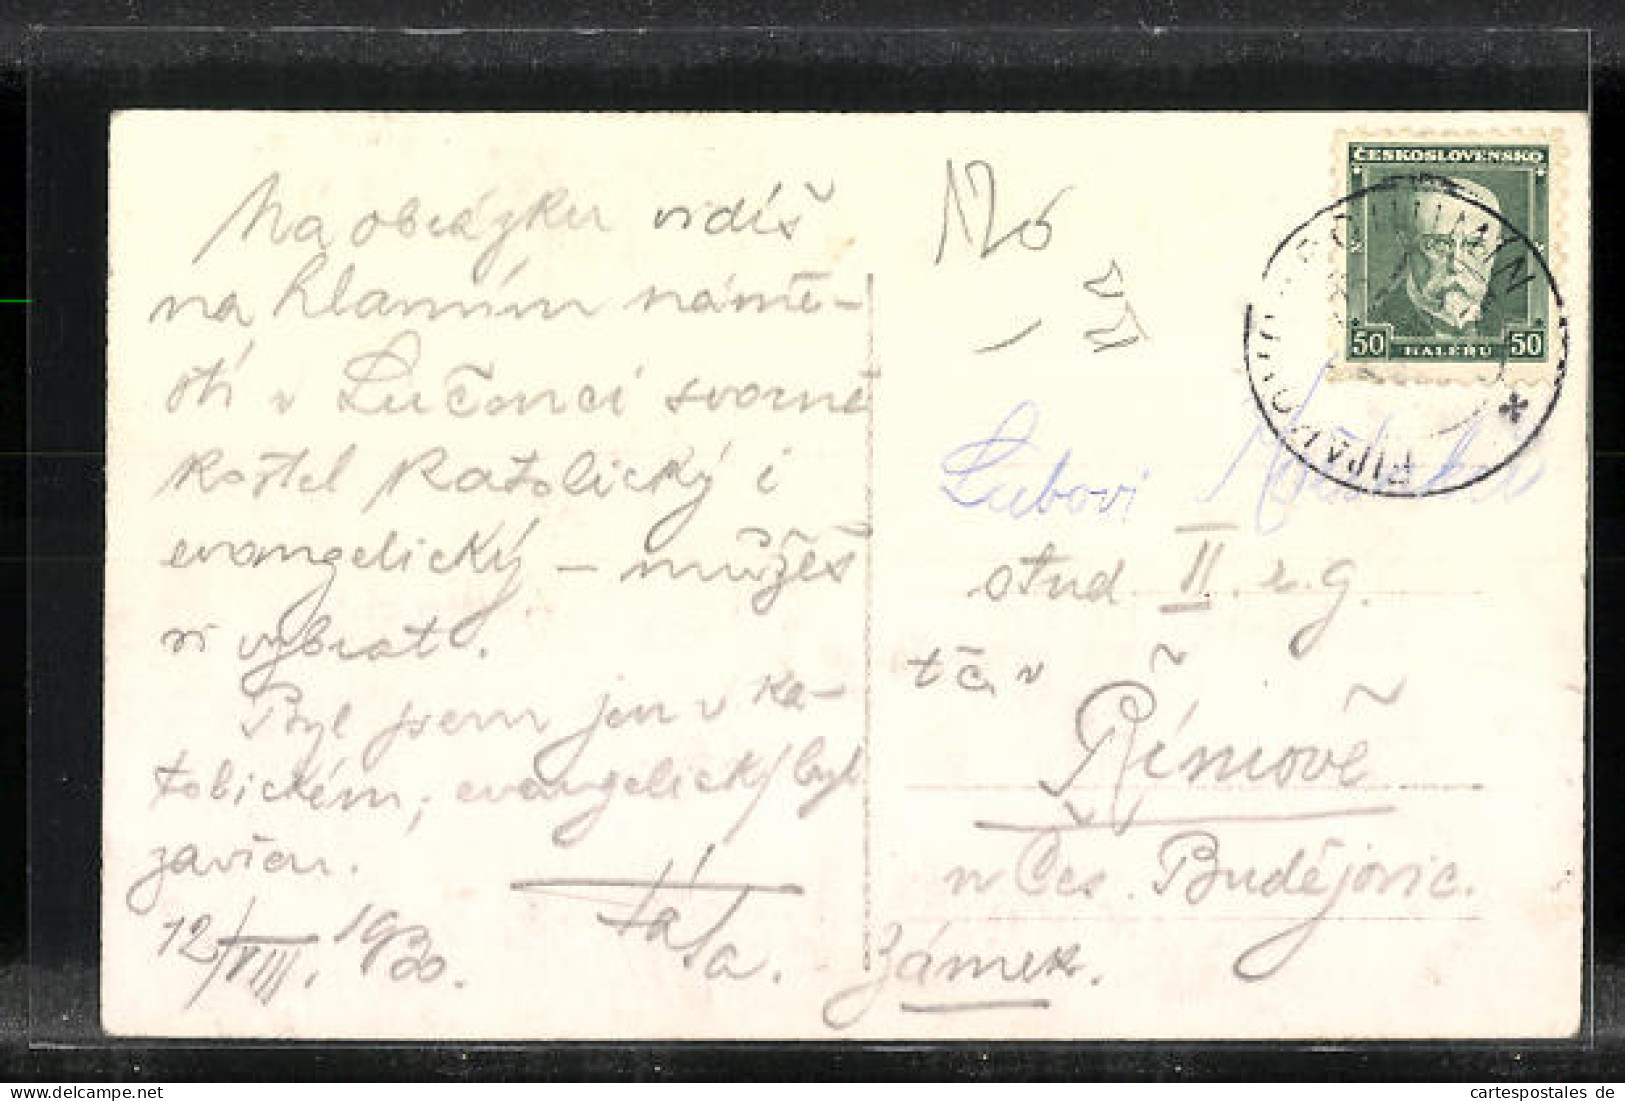 Na obrázku vidíš
na hlavním námě-
stí v Lučenci svorně
kostel katolický i
evangelický – můžeš
si vybrat.
Byl jsem jen v ka-
tolickém, evangelický byl
zavřen.
Táta.
12/VIII. 1930.
ČESKOSLOVENSKO
50 HALÉŘŮ 50
BOHUMÍN
Lubovi
stud II. r. g.
t č. v
Římově
u Čes. Budějovic.
Zámek.
cartespostales de